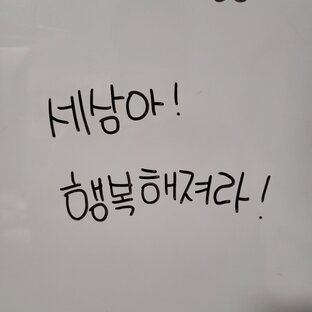 세상아!
행복해져라!